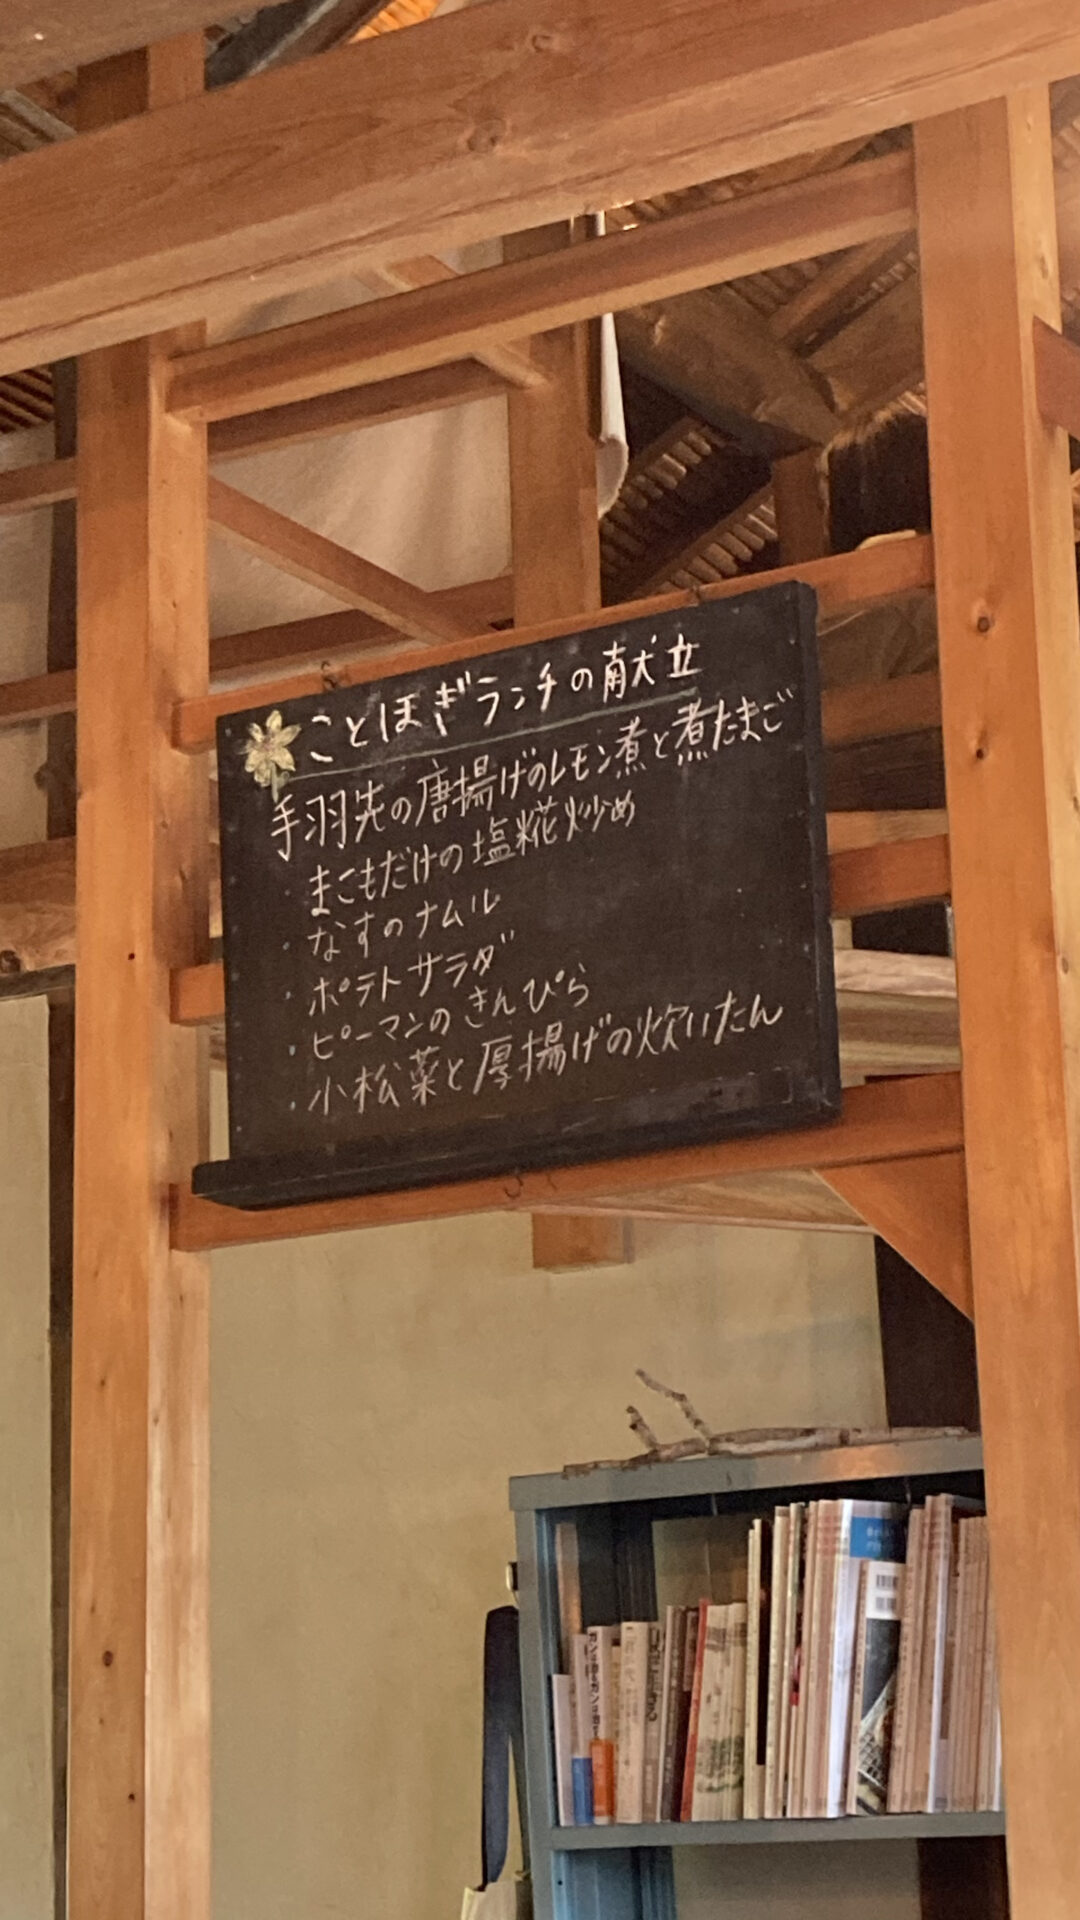 ことほぎランチの献立
手羽先の唐揚げのレモン煮と煮たまご
・まこもだけの塩糀炒め
・なすのナムル
・ポテトサラダ
・ピーマンのきんぴら
・小松菜と厚揚げの炊いたん